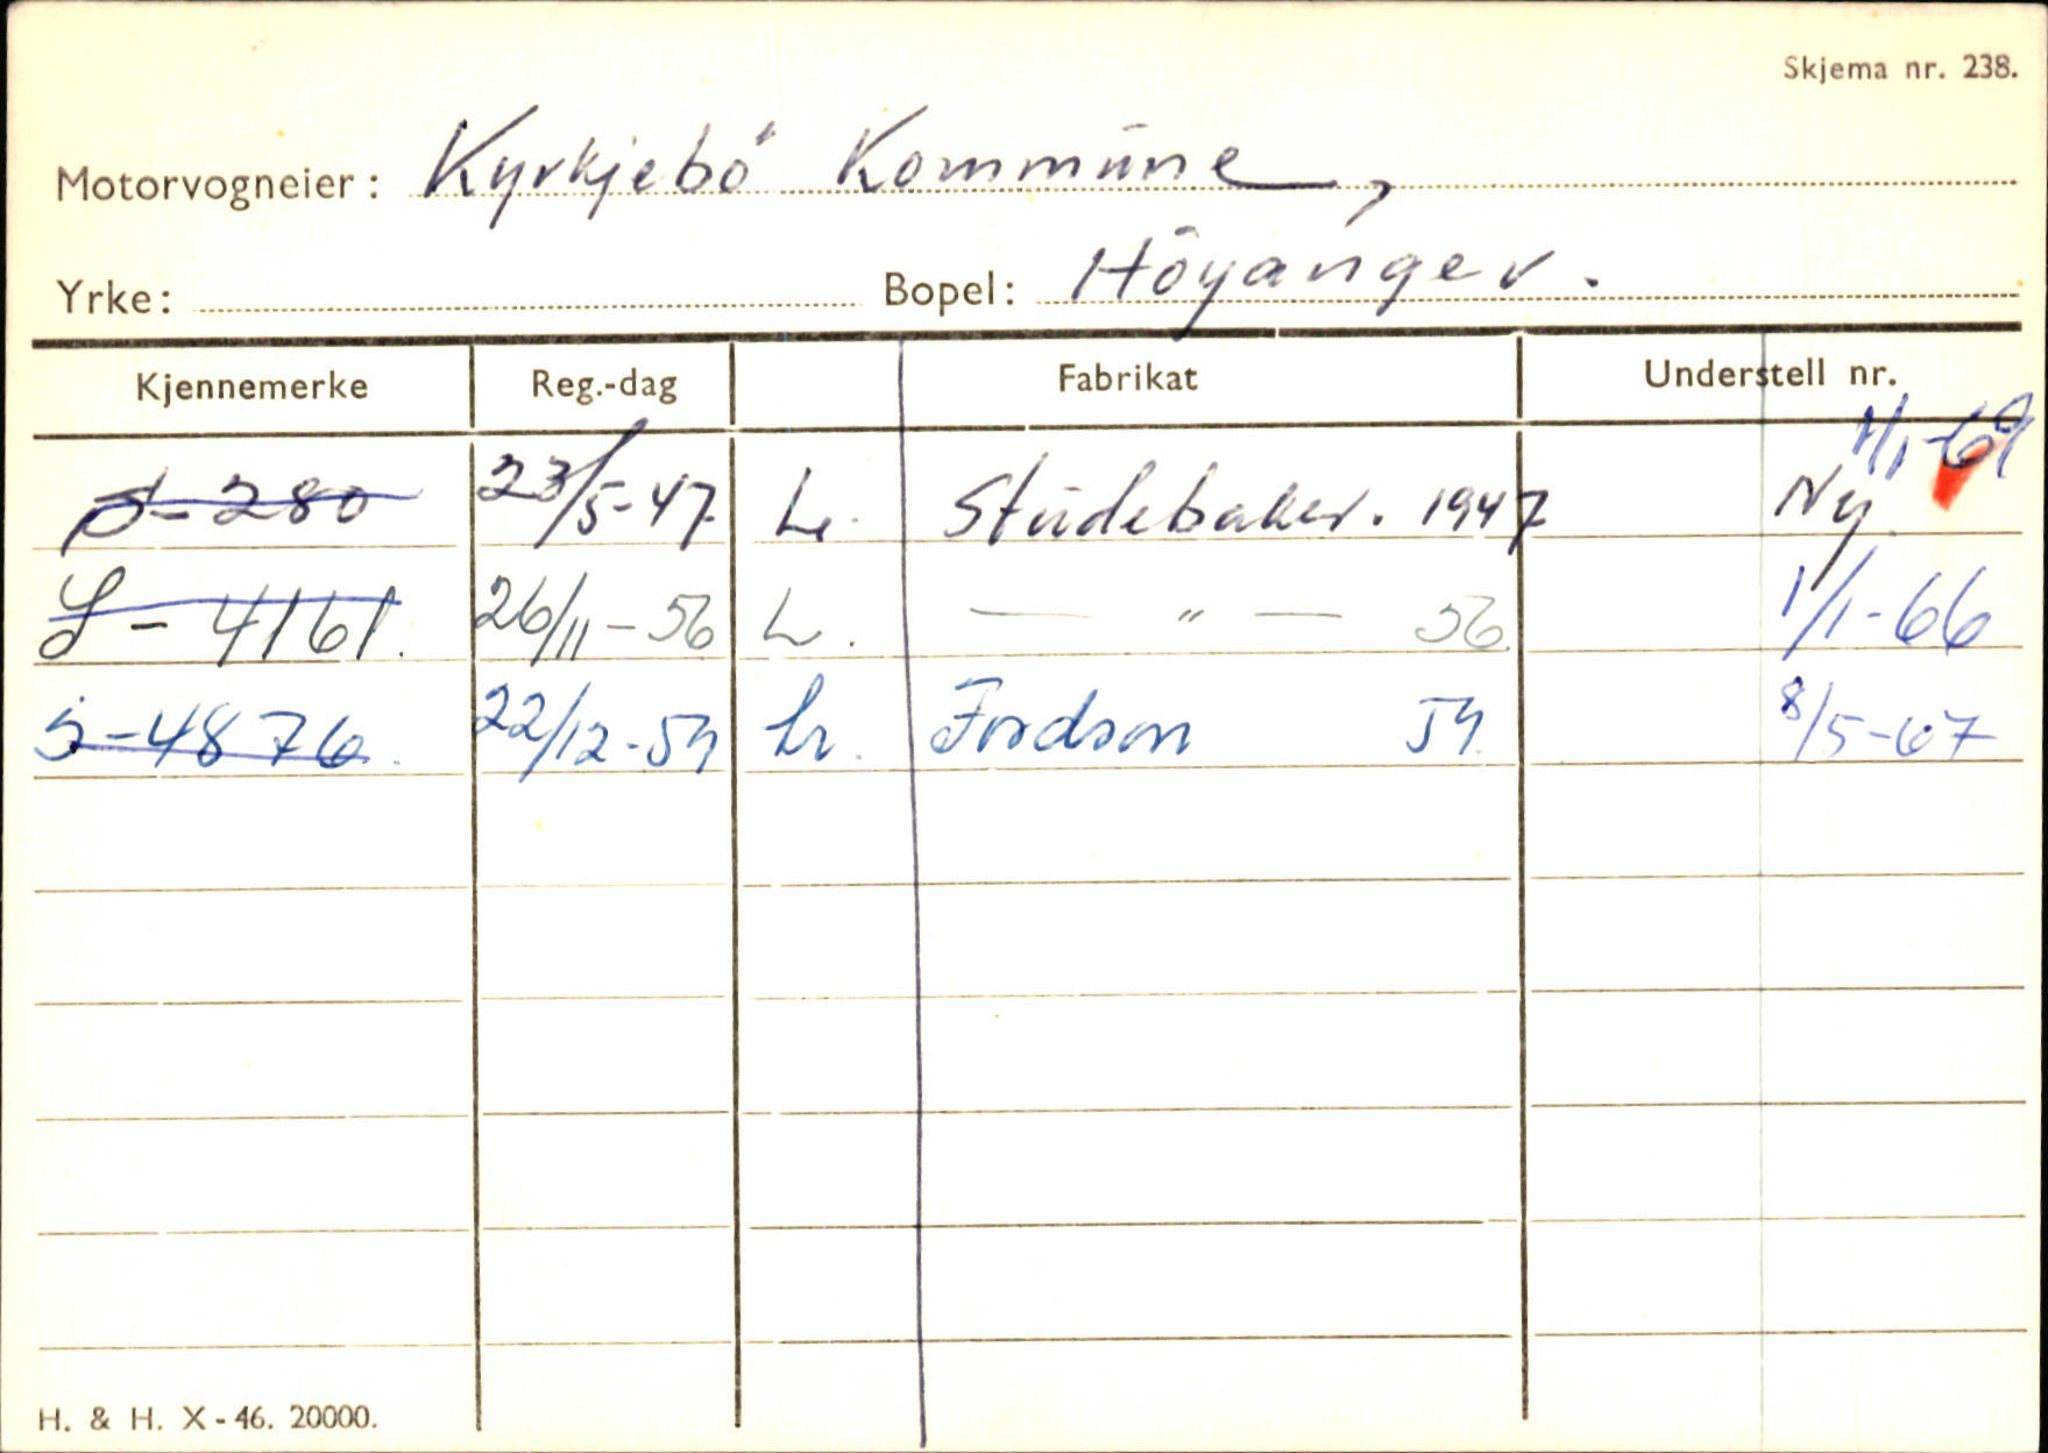 Skjema nr. 238.
Motorvogneier: Kyrkjebö Kommune,
Yrke: Bopel: Höyanger.
Kjennemerke Reg.-dag Fabrikat Understell nr.
1/1-69
S-280 23/5-47 L. Studebaker. 1947 Ny.
S-4161. 26/11-56 L. — " — 56 1/1-66
S-4876. 22/12-54 Fordson 54. 8/5-67
H. & H. X-46. 20000.